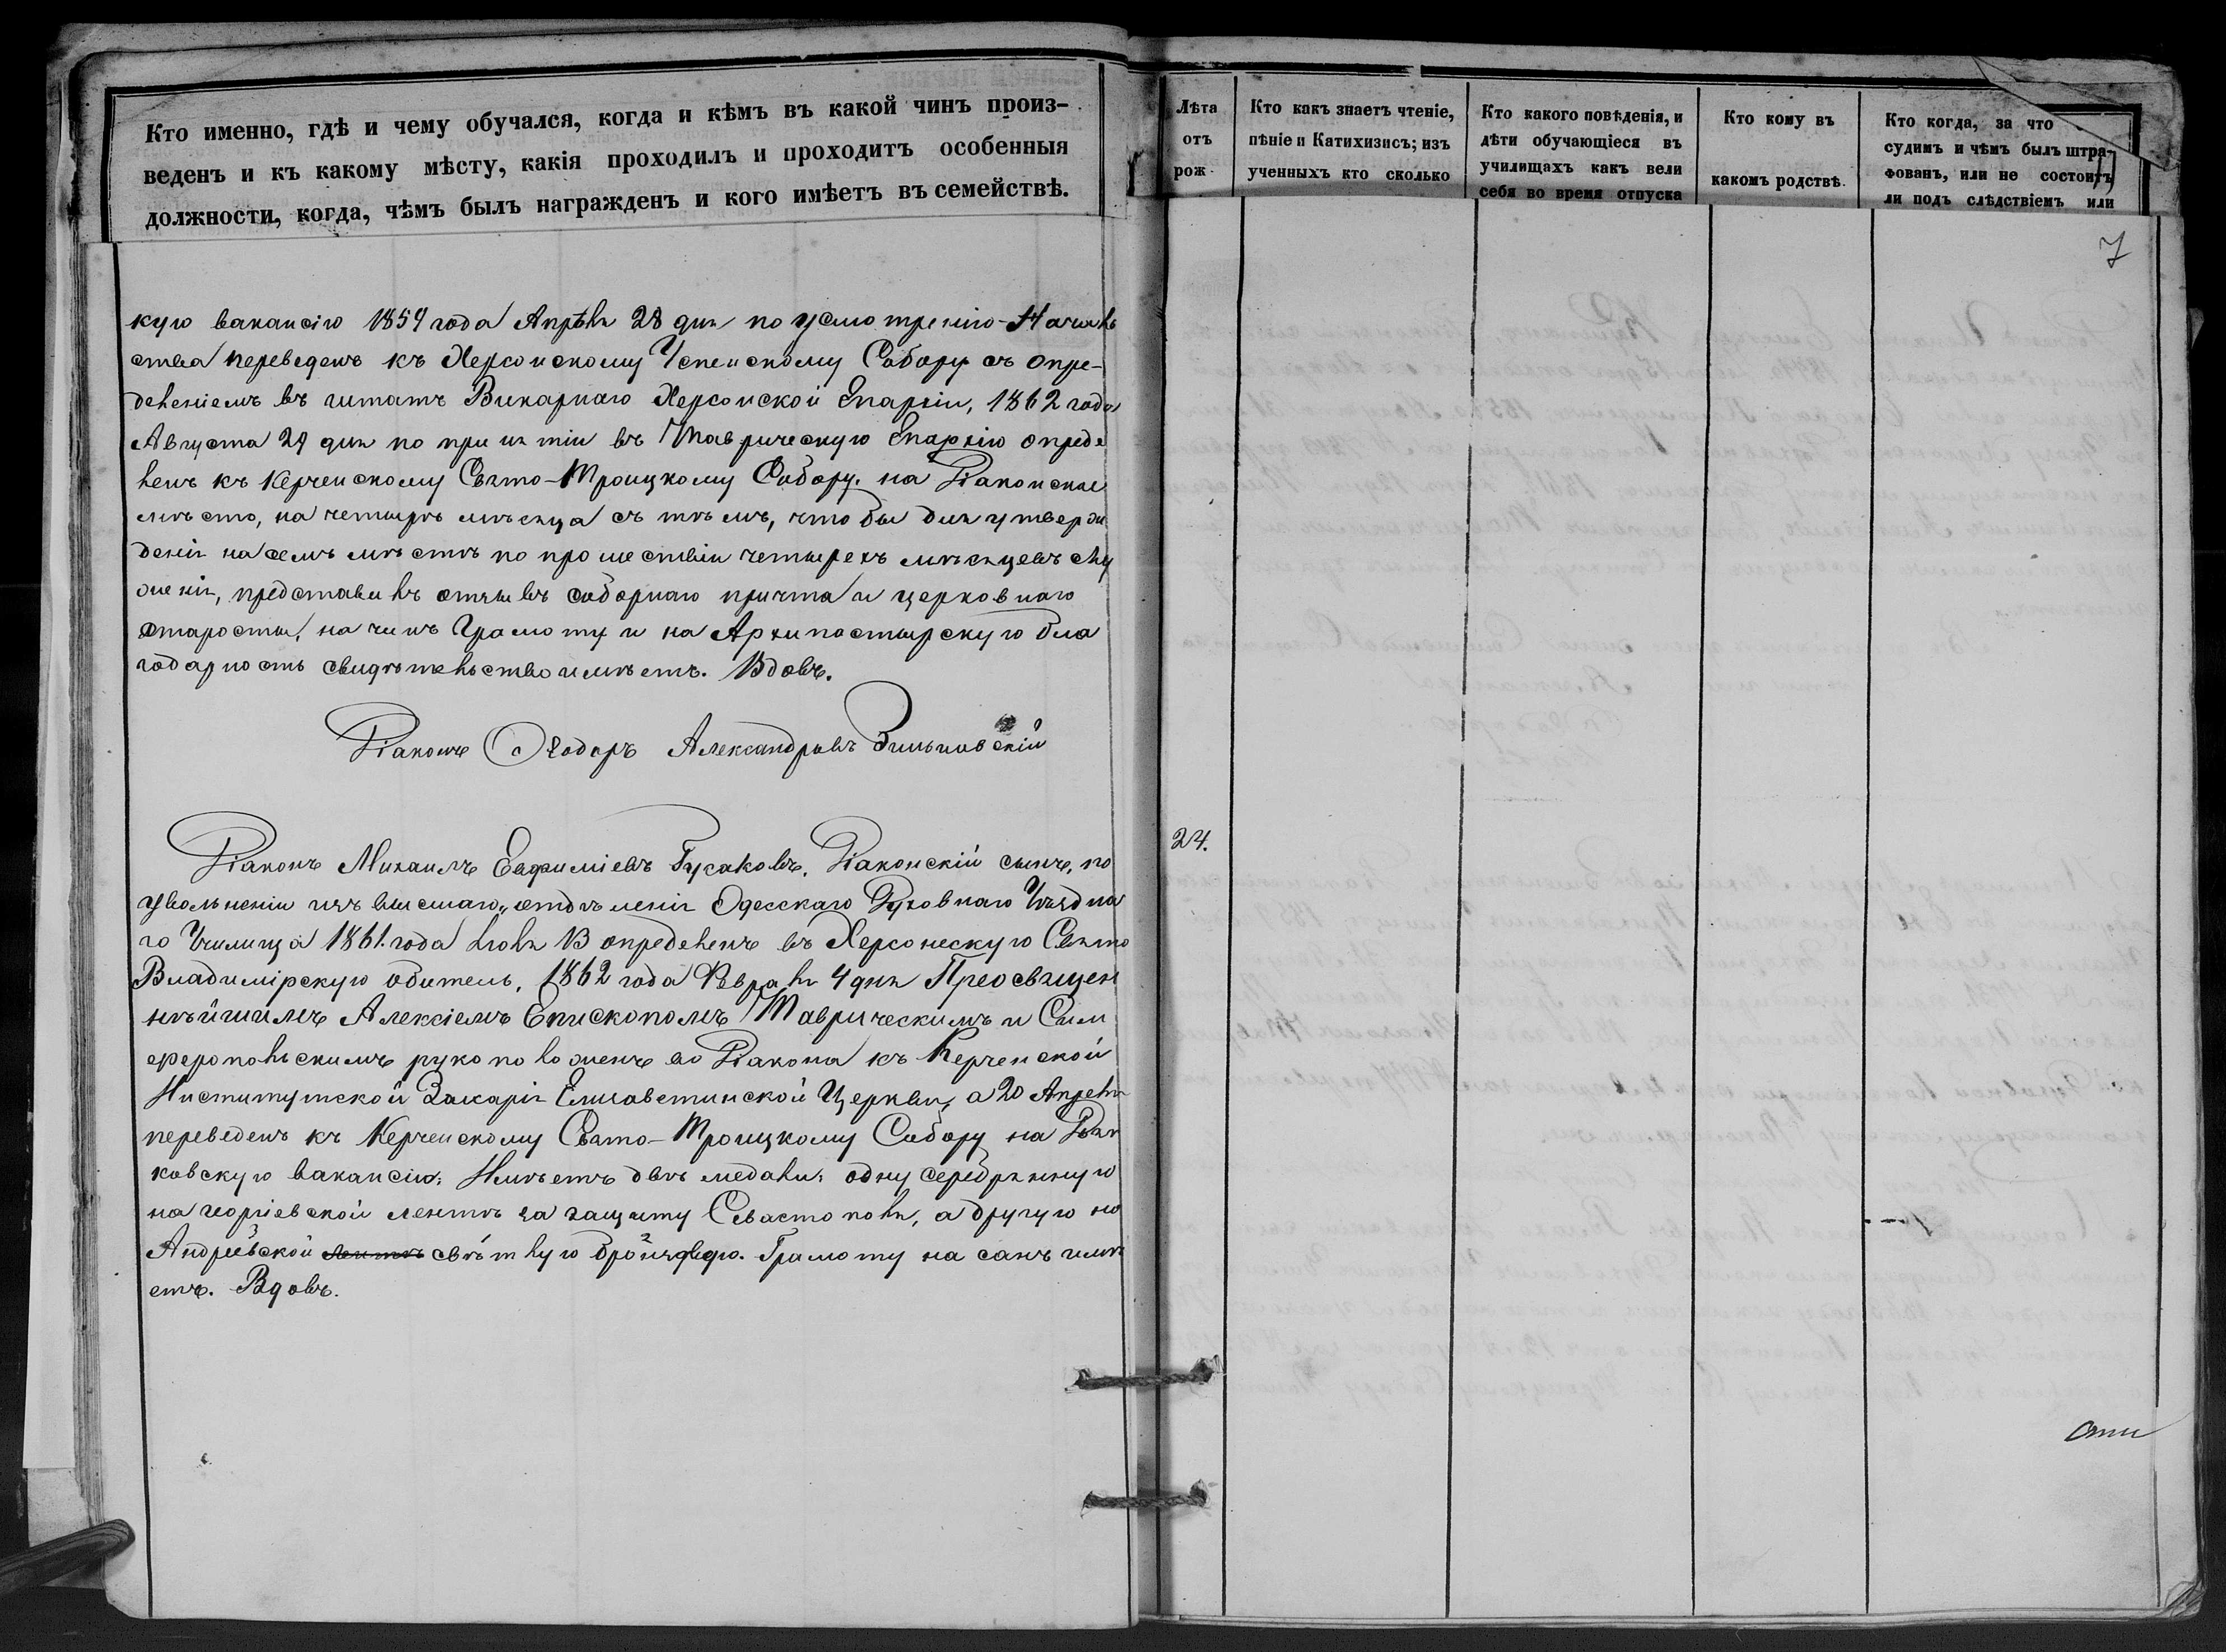 Кто именно, гдѣ и чему обучался, когда и кѣмъ въ какой чинъ произ-
веденъ и къ какому мѣсту, какія проходилъ и проходитъ особенныя
должности, когда, чѣмъ былъ награжденъ и кого имѣетъ въ семействѣ.
кую вакансію 1859 года Апрѣля 28 дня по усмотренію Началь
ства переведенъ къ Херсонскому Успенскому Собору съ опре-
деленіемъ въ штатъ Викарнаго Херсонской Епархіи, 1862 года
Августа 29 дня по принятіи въ Таврическую Епархію опреде
ленъ къ Керченскому Свято-Троицкому Собору на Діаконское
мѣсто, на четырѣ мѣсяца съ тѣмъ, чтобы для утверж
денія на семъ мѣстѣ по прошествіи четырехъ мѣсяцевъ слу
женія, представилъ отзывъ соборнаго причта и церковнаго
старосты, на чинъ Грамоту и на Архипастырскую бла
годарность свидѣтельство имѣетъ. Вдовъ.
Діаконъ Ѳеодоръ Александровъ Зиньковскій
Діаконъ Михаилъ Евфиміевъ Гусаковъ, Діаконскій сынъ, по
увольненіи изъ высшаго отдѣленія Одесскаго Духовнаго Уѣздна
го Училища 1861 года Іюля 13 опредѣленъ въ Херсонескую Свято
Владимірскую обитель, 1862 года Февраля 4 дня Преосвящен
нѣйшимъ Алексіемъ Епископомъ Таврическимъ и Сим
феропольскимъ рукоположенъ во Діакона къ Керченской
Институтской Захаріе Елисаветинской Церкви, а 20 Апреля
переведенъ къ Керченскому Свято-Троицкому Собору на Дья
ковскую вакансію. Имѣетъ двѣ медали: одну серебрянную
на георгіевской лентѣ за защиту Севастополя, а другую на
Андреевской лентѣ свѣтлую бронзовую. Грамоту на санъ имѣ
етъ. Вдовъ.
Лѣта
отъ
рож
Кто какъ знаетъ чтеніе,
пѣніе и Катихизисъ; изъ
ученныхъ кто сколько
Кто какого поведенія, и
дѣти обучающіеся въ
училищахъ какъ вели
себя во время отпуска
Кто кому въ
какомъ родствѣ.
Кто когда, за что
судимъ и чѣмъ былъ штра-
фованъ, или не состоитъ
ли подъ слѣдствіемъ или
7
24.